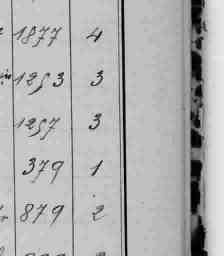 1877 4
1253 3
1257 3
379 1
879 2